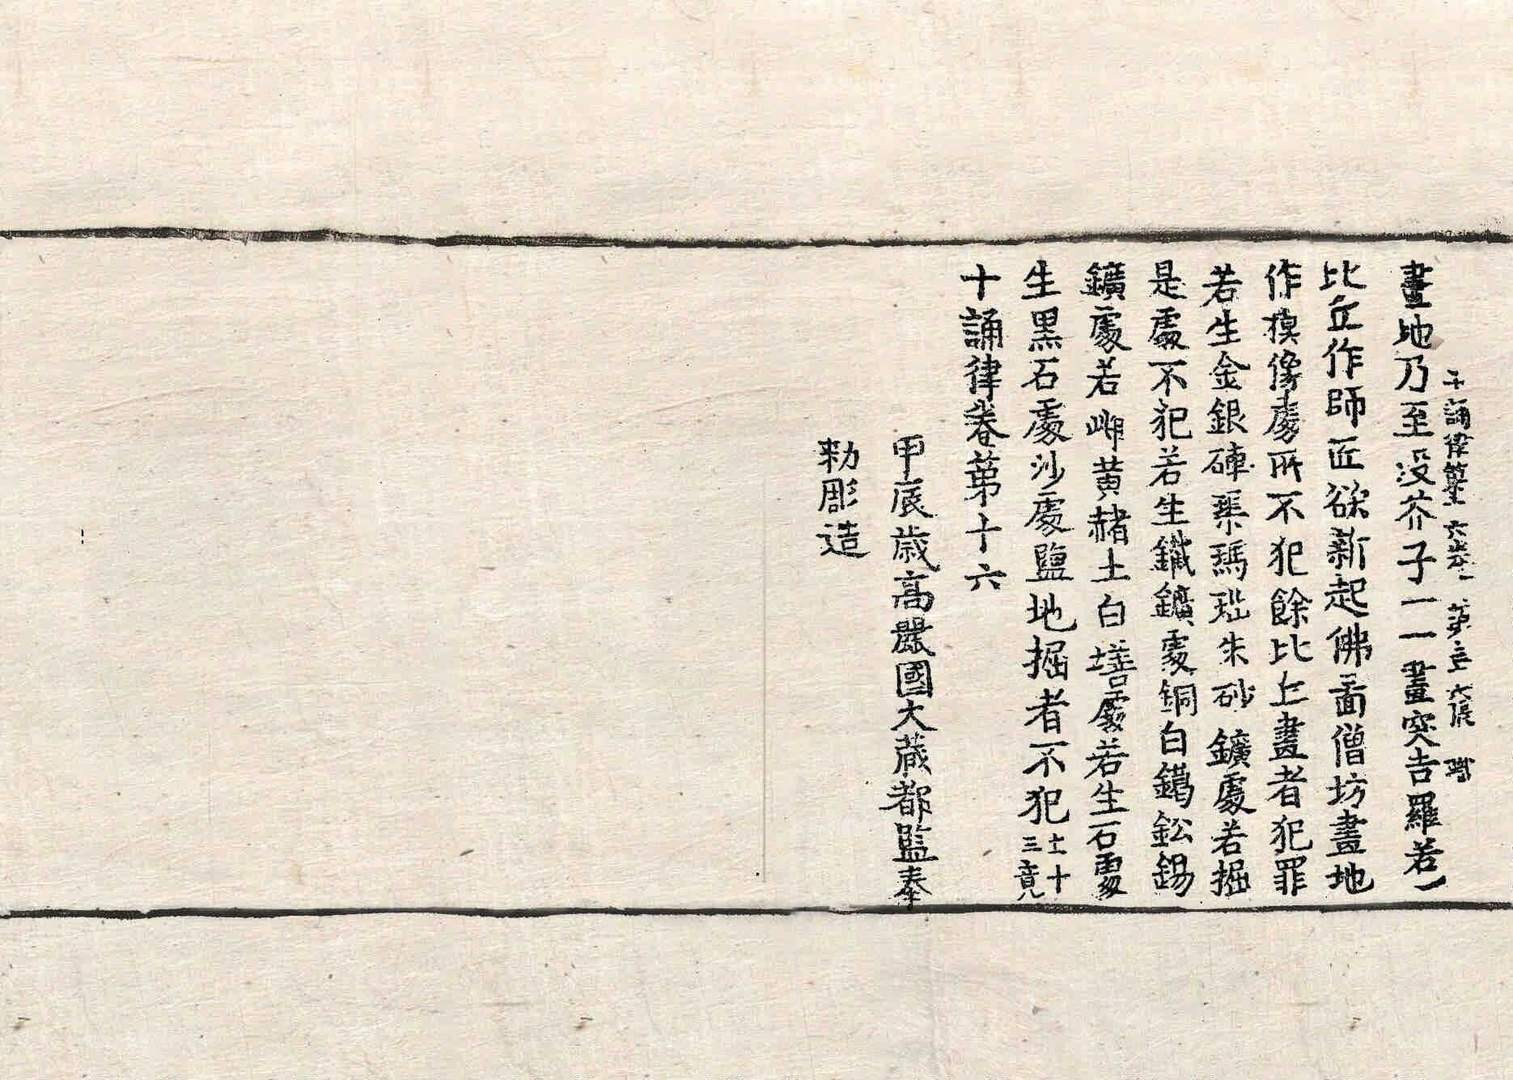 十誦律第十六卷 第三六張
畫地乃至沒芥子一一畫突吉羅若
比丘作師匠欲新起佛啚僧坊畫地
作摸像處所不犯餘比丘畫者犯罪
若生金銀硨磲瑪瑙朱砂鑛處若掘
是處不犯若生鐵鑛處銅白鑞鈆錫
鑛處若雌黃赭土白墡處若生石處
生黑石處沙處鹽地掘者不犯 七十三竟
十誦律卷第十六
甲辰歲高麗國大藏都監奉
勅彫造